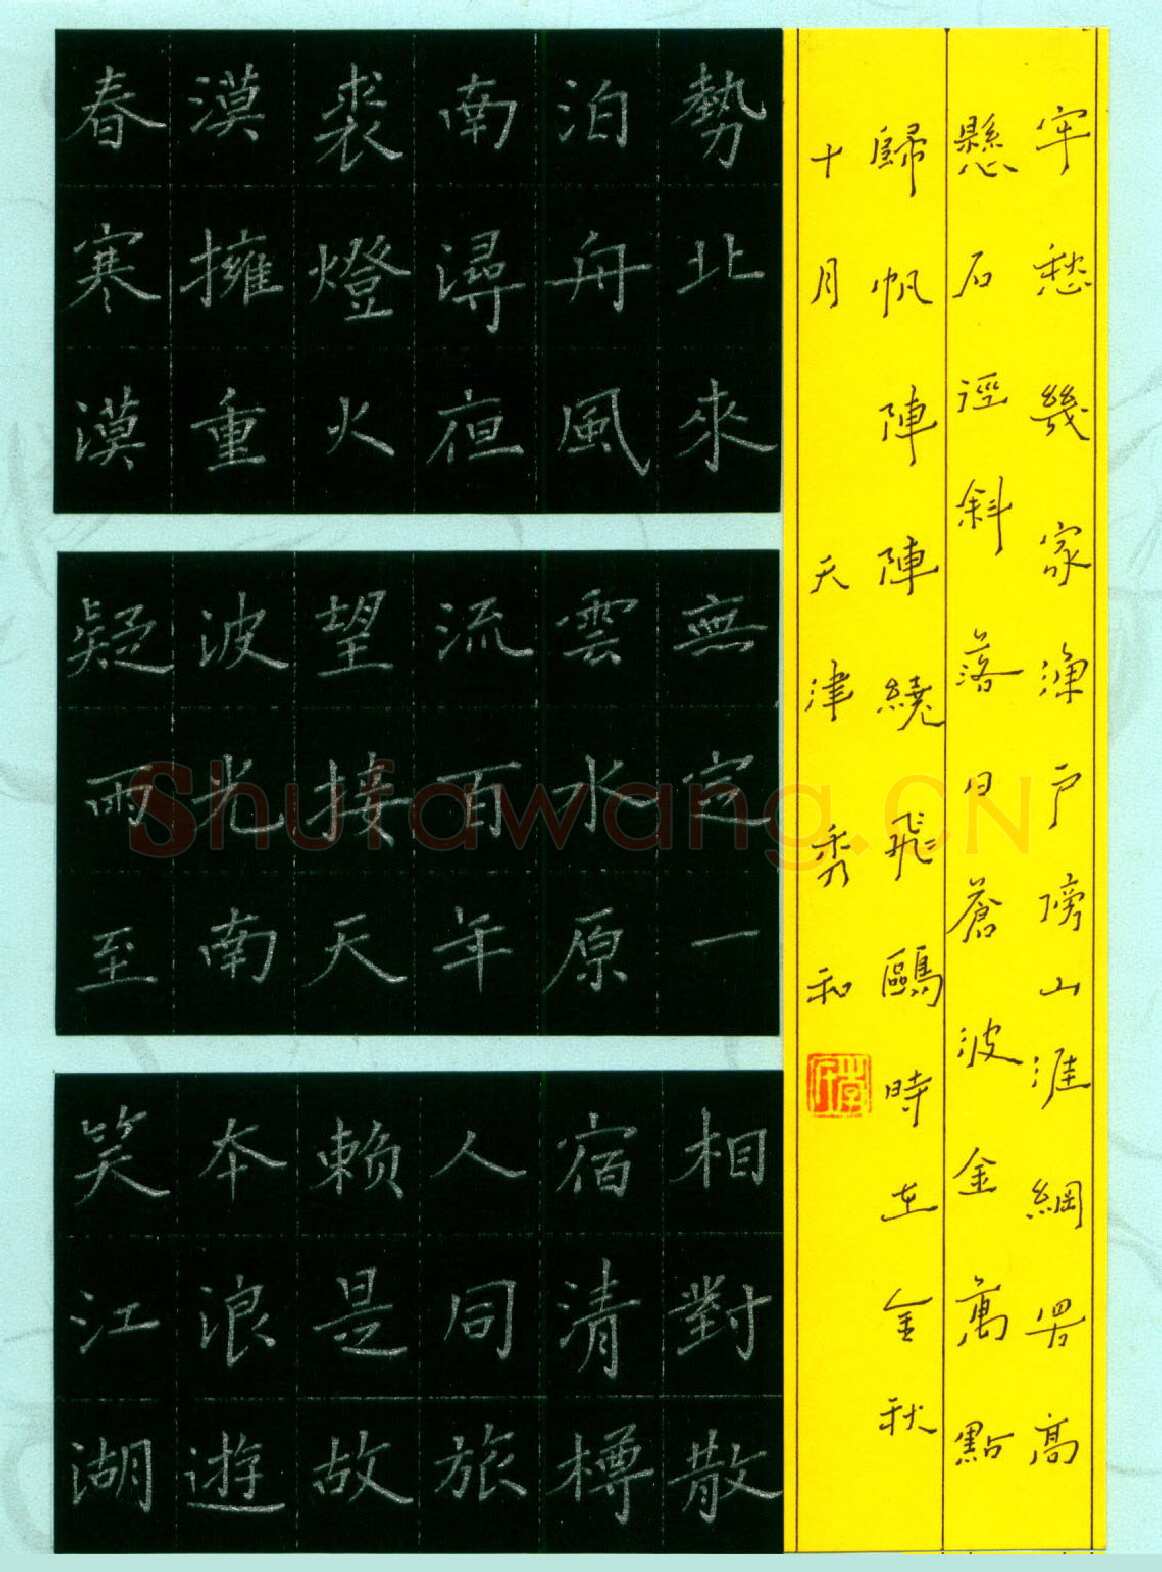 春寒漠
漠擁重
裘燈火
南潯夜
泊舟風
勢北來
疑雨至
波光南
望接天
流百年
雲水原
無定一
笑江湖
本浪遊
赖是故
人同旅
宿清樽
相對散
牢愁幾家漁户傍山涯網罟高
懸石徑斜落日蒼波金萬點
歸帆陣陣繞飛鷗時在金秋
十月天津秀和
Shufawang.CN